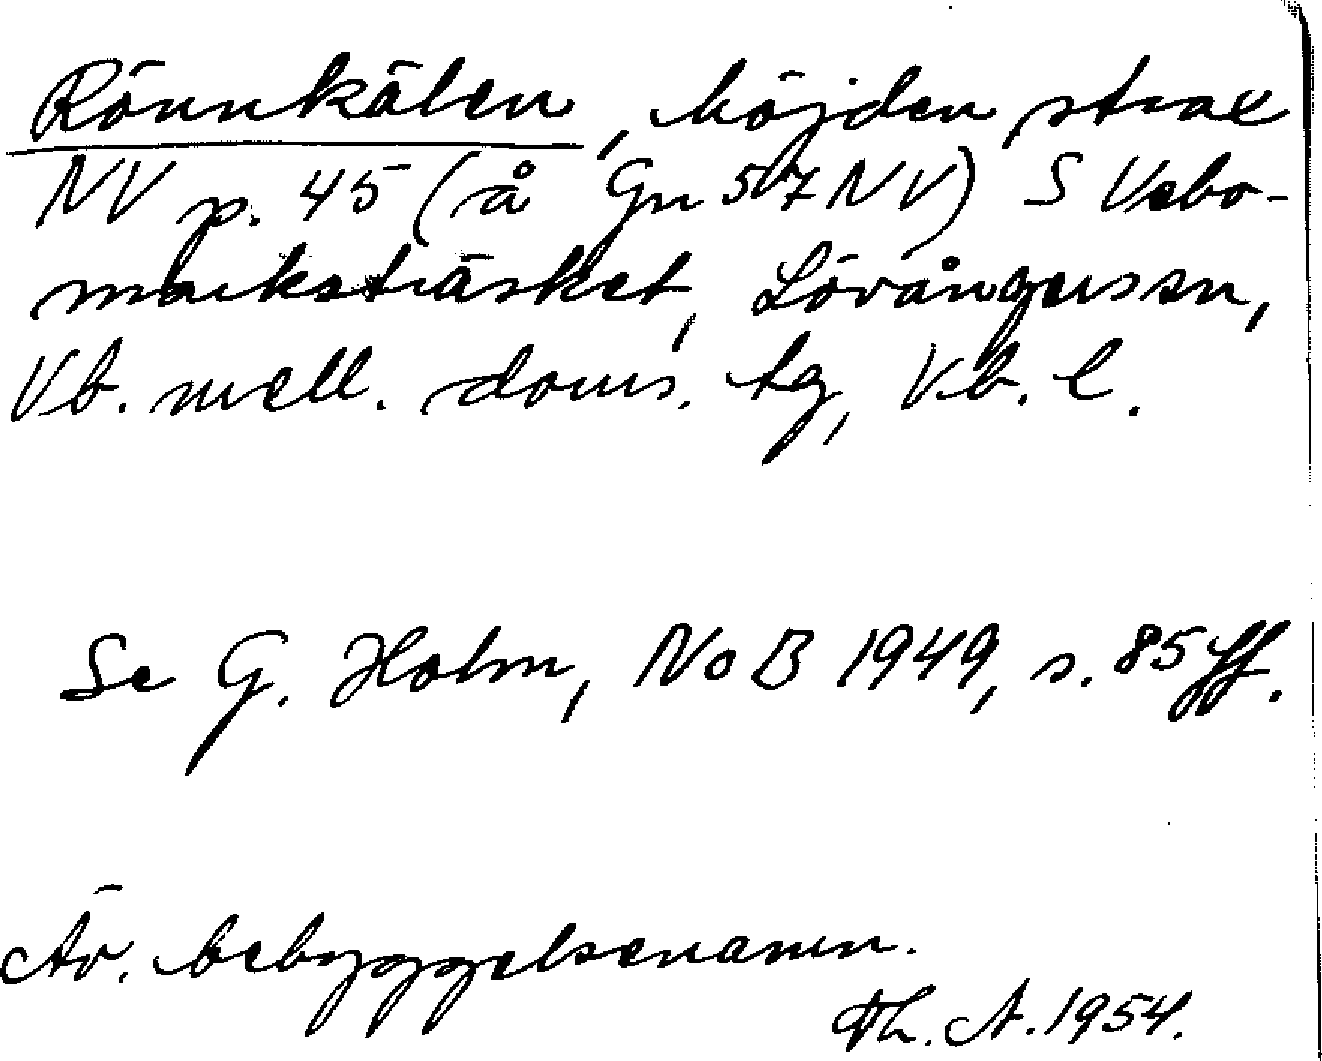 Rönnkälen, höjden strax
NV p. 45 (å Gn 57 NV) S Vebo-
marksträsket, Lövångers sn,
Vb. mell. doms. tg, Vb. l.
Se G. Holm, NoB 1949, s. 85 ff.
Äv. bebyggelsenamn.
Th. A. 1954.